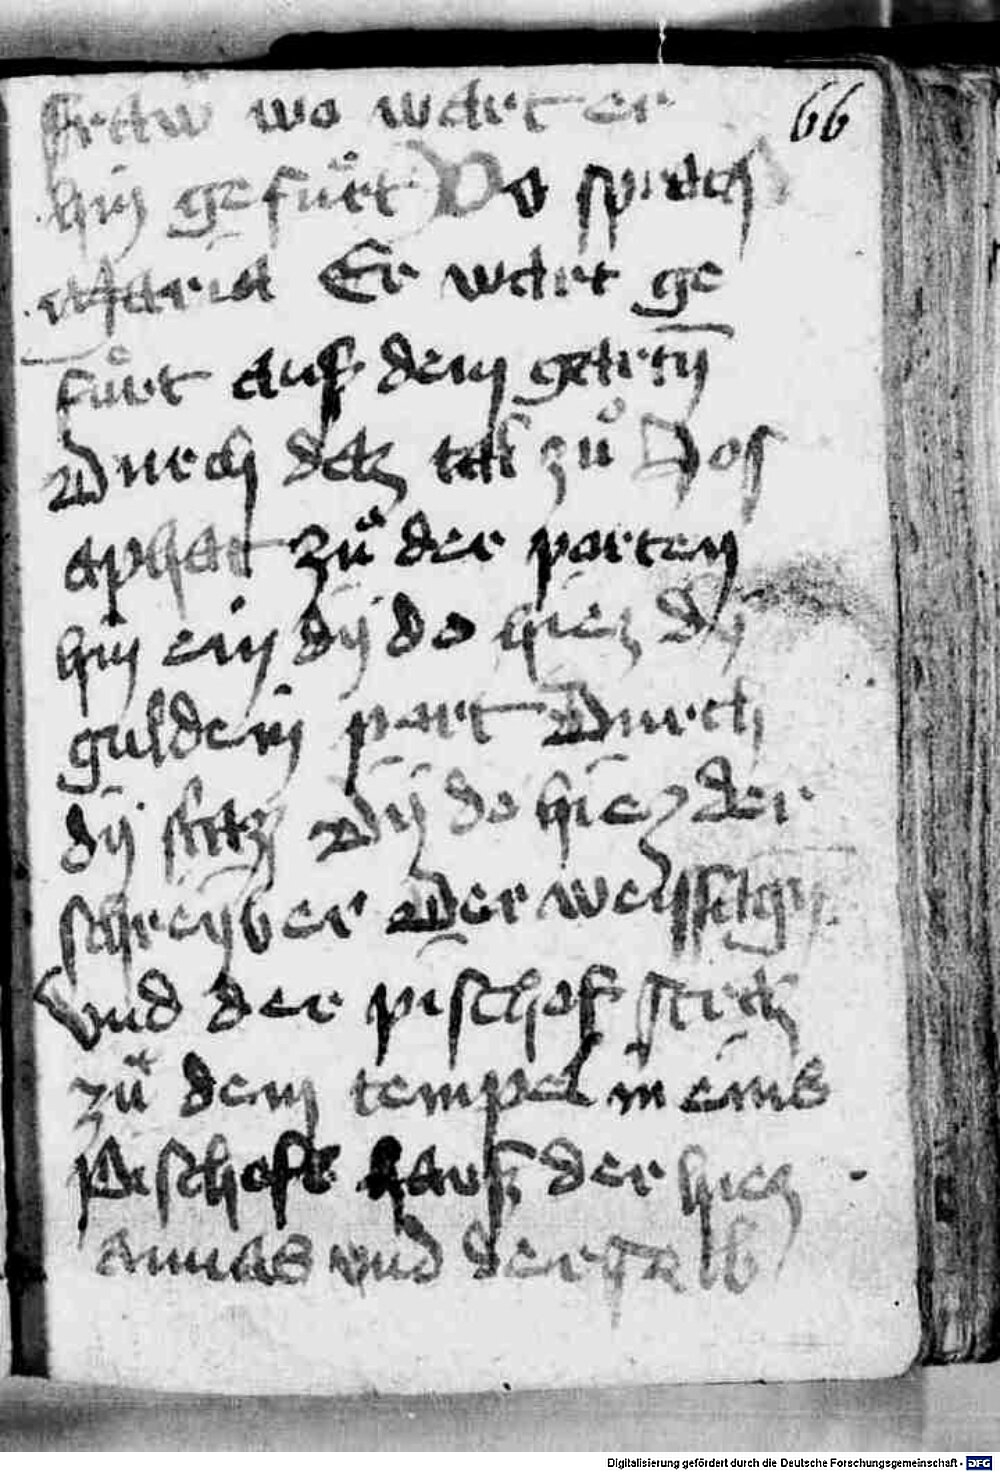 fraw wo wart er
66
hin gefůrt Do sprach
Maria Er wart ge
fůrt auß dem gartñ
Durch daz tal zů Jos
aphat zů der porten
hin ein dÿ do hiez dÿ
guldein port Durch
dÿ stat Dÿ do hiez der
schreÿber Der weÿssagñ
vnd der pischof strasz
zů dem tempel in eins
Bischofs hausz der hiez
annas vnd der selb
Digitalisierung gefördert durch die Deutsche Forschungsgemeinschaft - DFG